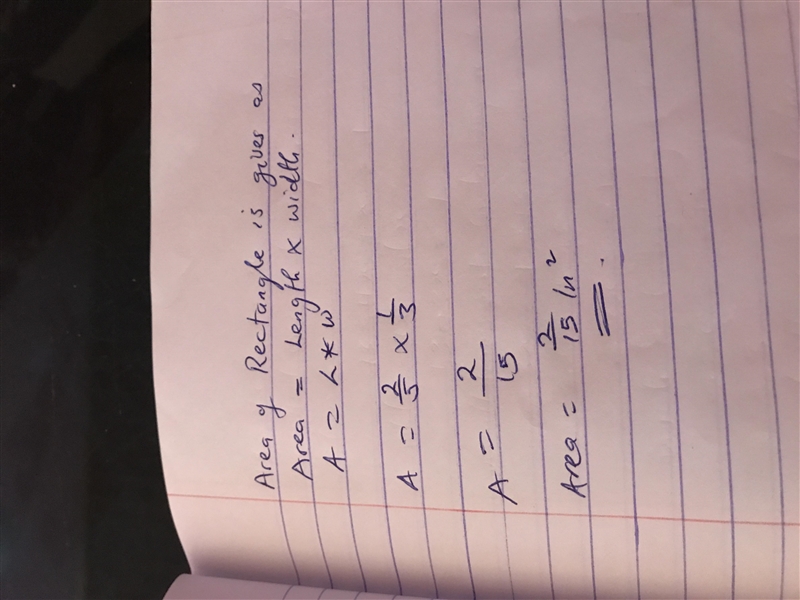 Area of Rectangle is given as
Area = Length x width.
A = L * W
A = 2/5 x 1/3
A = 2/15
Area = 2/15 in²